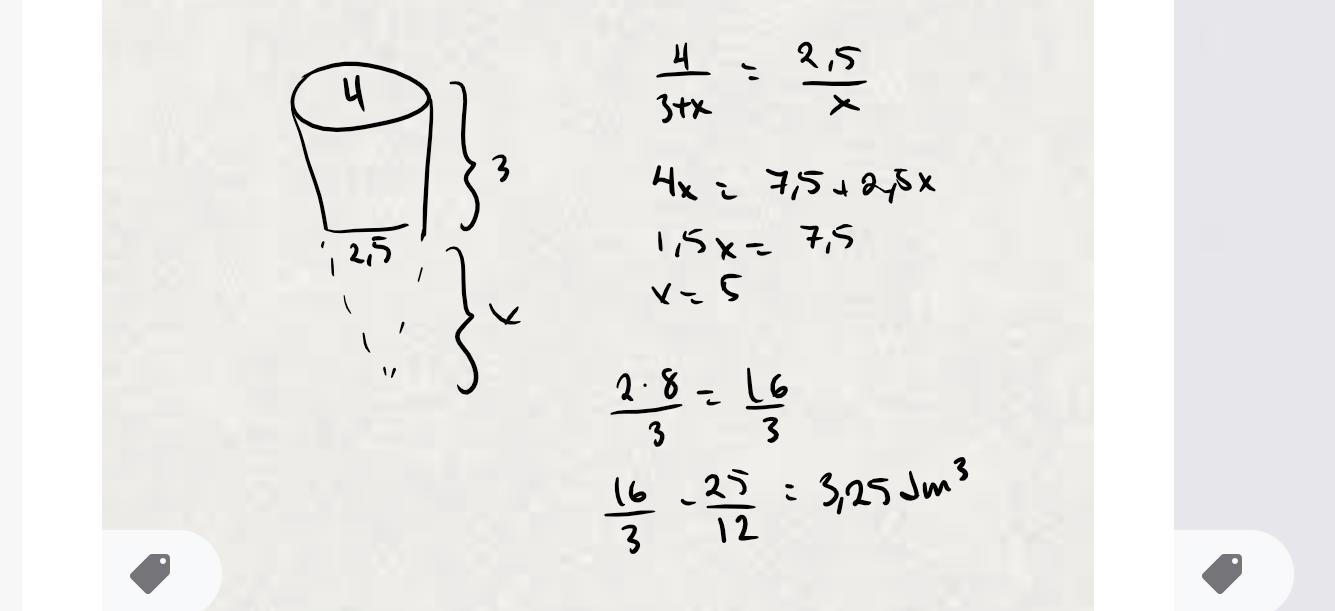 4
3
2,5
x
4/(3+x) = 2,5/x
4x = 7,5 + 2,5x
1,5x = 7,5
x = 5
2·8/3 = 16/3
16/3 - 25/12 = 3,25 dm³